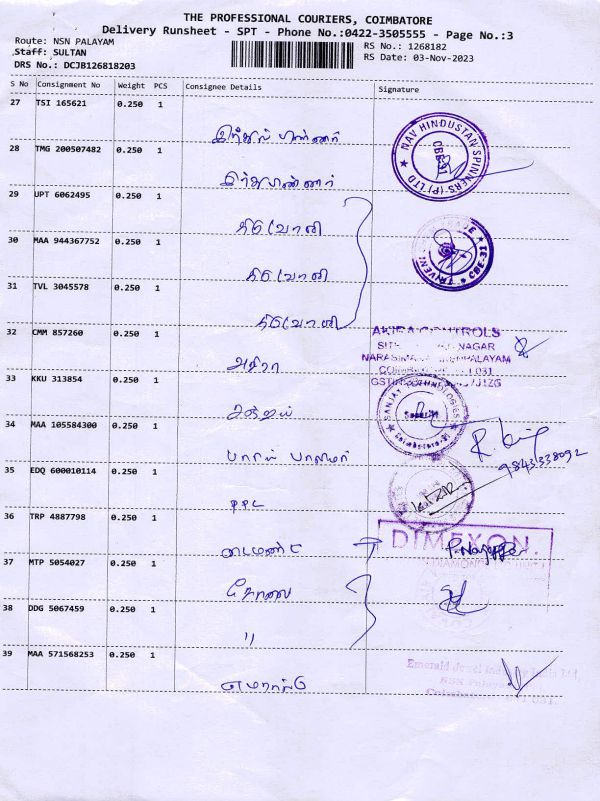 THE PROFESSIONAL COURIERS, COIMBATORE
Delivery Runsheet - SPT - Phone No.:0422-3505555 - Page No.:3
Route: NSN PALAYAM RS No.: 1268182
Staff: SULTAN RS Date: 03-Nov-2023
DRS No.: DCJB126818203
S No Consignment No Weight PCS Consignee Details Signature
27 TSI 165621 0.250 1
28 TMG 200507482 0.250 1
NAV HINDUSTAN SPINNERS (P) LTD
CBE-31
29 UPT 6062495 0.250 1
திரிவேனி
30 MAA 944367752 0.250 1
CBE-31
திரிவேனி
31 TVL 3045578 0.250 1
திரிவேனி
32 CMM 857260 0.250 1
AKIRA CONTROLS
NAGAR
அகிரா
33 KKU 313854 0.250 1
SANJAY TECHNOLOGIES
சஞ்சய்
34 MAA 105584300 0.250 1
9843338092
35 EDQ 600010114 0.250 1
PPC
36 TRP 4887798 0.250 1
DIMEXON
டைமண்ட்
37 MTP 5054027 0.250 1
கோவை
38 DDG 5067459 0.250 1
"
39 MAA 571568253 0.250 1
Emerald Jewel Industry India Ltd,
எமரால்டு